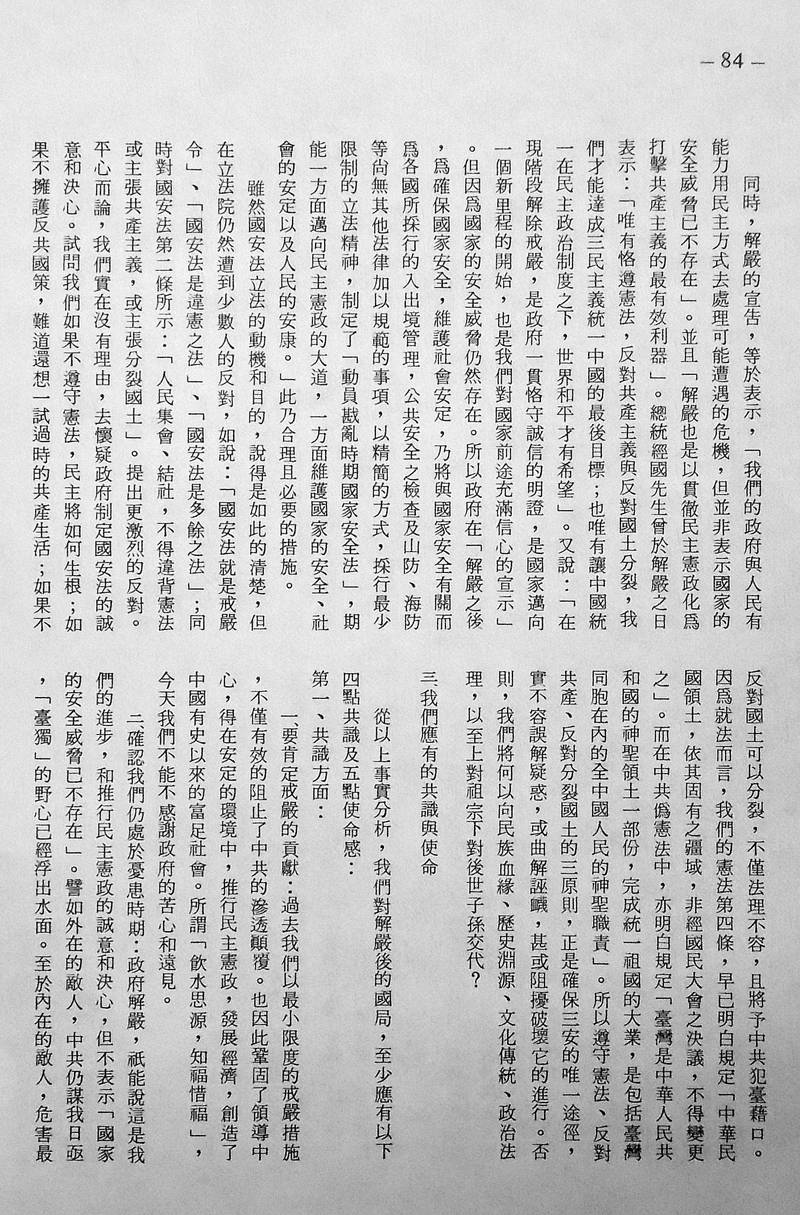 — 84 —
同時，解嚴的宣告，等於表示，「我們的政府與人民有
能力用民主方式去處理可能遭遇的危機，但並非表示國家的
安全威脅已不存在」。並且「解嚴也是以貫徹民主憲政化爲
打擊共產主義的最有效利器」。總統經國先生曾於解嚴之日
表示：「唯有恪遵憲法，反對共產主義與反對國土分裂，我
們才能達成三民主義統一中國的最後目標；也唯有讓中國統
一在民主政治制度之下，世界和平才有希望」。又說：「在
現階段解除戒嚴，是政府一貫恪守誠信的明證，是國家邁向
一個新里程的開始，也是我們對國家前途充滿信心的宣示」
。但因爲國家的安全威脅仍然存在。所以政府在「解嚴之後
，爲確保國家安全，維護社會安定，乃將與國家安全有關而
爲各國所採行的入出境管理，公共安全之檢查及山防、海防
等尚無其他法律加以規範的事項，以精簡的方式，採行最少
限制的立法精神，制定了「動員戡亂時期國家安全法」，期
能一方面邁向民主憲政的大道，一方面維護國家的安全、社
會的安定以及人民的安康。」此乃合理且必要的措施。
雖然國安法立法的動機和目的，說得是如此的清楚，但
在立法院仍然遭到少數人的反對，如說：「國安法就是戒嚴
令」、「國安法是違憲之法」、「國安法是多餘之法」；同
時對國安法第二條所示：「人民集會、結社，不得違背憲法
或主張共產主義，或主張分裂國土」。提出更激烈的反對。
平心而論，我們實在沒有理由，去懷疑政府制定國安法的誠
意和決心。試問我們如果不遵守憲法，民主將如何生根；如
果不擁護反共國策，難道還想一試過時的共產生活；如果不
反對國土可以分裂，不僅法理不容，且將予中共犯臺藉口。
因爲就法而言，我們的憲法第四條，早已明白規定「中華民
國領土，依其固有之疆域，非經國民大會之決議，不得變更
之」。而在中共僞憲法中，亦明白規定「臺灣是中華人民共
和國的神聖領土一部份，完成統一祖國的大業，是包括臺灣
同胞在內的全中國人民的神聖職責」。所以遵守憲法、反對
共產、反對分裂國土的三原則，正是確保三安的唯一途徑，
實不容誤解疑惑，或曲解誣衊，甚或阻擾破壞它的進行。否
則，我們將何以向民族血緣、歷史淵源、文化傳統、政治法
理，以至上對祖宗下對後世子孫交代？
三、我們應有的共識與使命
從以上事實分析，我們對解嚴後的國局，至少應有以下
四點共識及五點使命感：
第一、共識方面：
一、要肯定戒嚴的貢獻：過去我們以最小限度的戒嚴措施
，不僅有效的阻止了中共的滲透顛覆。也因此鞏固了領導中
心，得在安定的環境中，推行民主憲政，發展經濟，創造了
中國有史以來的富足社會。所謂「飲水思源，知福惜福」，
今天我們不能不感謝政府的苦心和遠見。
二、確認我們仍處於憂患時期：政府解嚴，祇能說這是我
們的進步，和推行民主憲政的誠意和決心，但不表示「國家
的安全威脅已不存在」。譬如外在的敵人，中共仍謀我日亟
，「臺獨」的野心已經浮出水面。至於內在的敵人，危害最